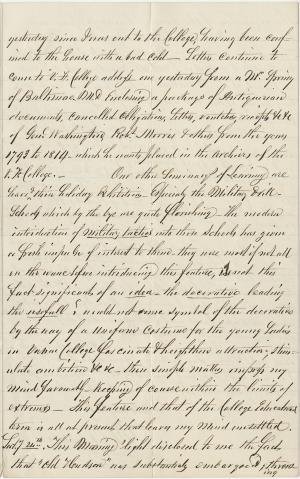 yesterday since I was out to the College, having been conf-
ined to the house with a bad cold — Letters continue to
come to V. F. College address one yesterday from a Mr. Spring
of Baltimore Md. enclosing a package of Antiquarian
documents, cancelled obligations, letters, vouchers, receipts &c &c
of Genl Washington, Robt Morris & others from the years
1793 to 1814 which he wants placed in the archives of the
V. F. College. — Our other Seminarys of Learning are
their holiday Exhibitions. Especially the Military &
Schools which by the bye are quite flourishing. The modern
introduction of military tactics into these schools has given
a fresh impulse of interest to them. they were most if not all
on the wane before introducing this feature, is not this
fact significant of an idea — the decorative leading
the usefull & would not some symbol of the decorative
by the way of a Uniform Costume for the young Ladies
in College fascinate & heighten attraction, stim-
ulate ambition &c &c — these simple matters impress my
mind favorably — keeping of course within the limits of
extremes — This feature and that of the College Educational
term is all at present that leaves my mind unsettled.
24th This Morning's light disclosed to me the fact
that "Old Houdson" was substantialy embargoed &